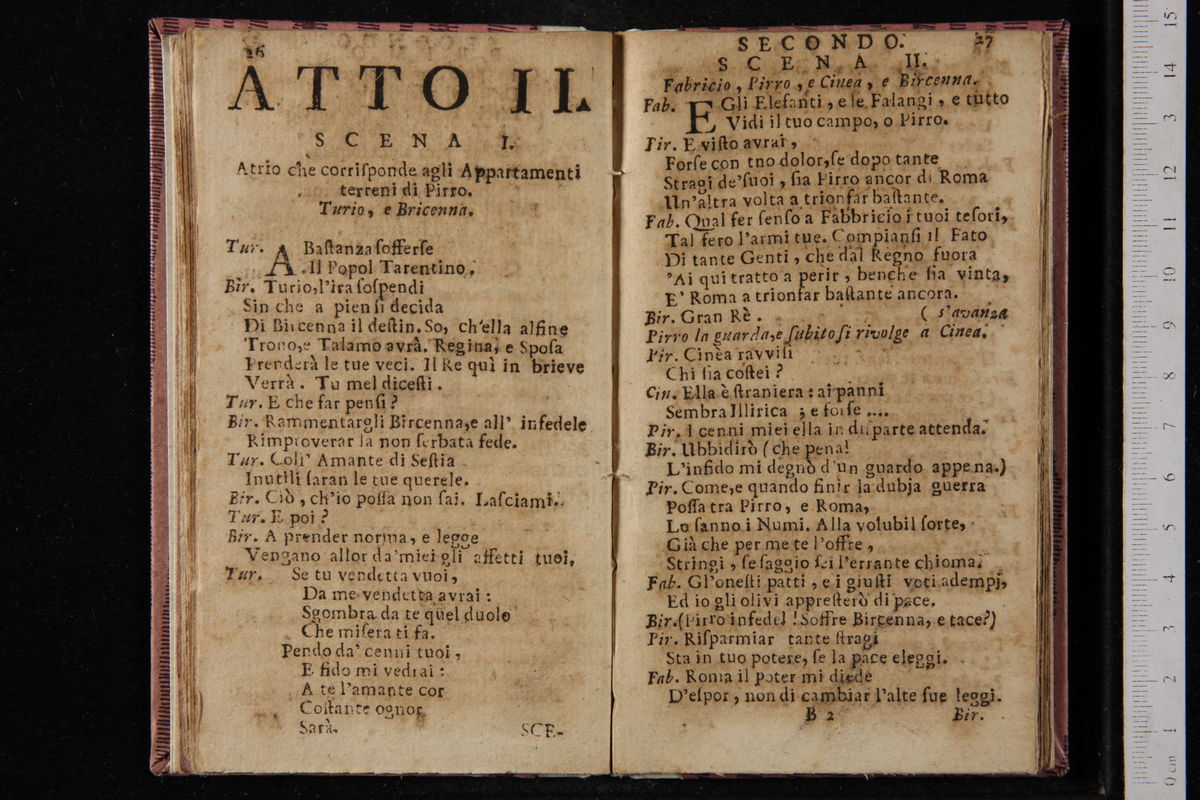 26
ATTO II.
SCENA I.
Atrio che corriſponde agli Appartamenti
terreni di Pirro.
Turio, e Bricenna.
Tur. A Baſtanza ſofferſe
Il Popol Tarentino,
Bir. Turio, l'ira ſoſpendi
Sin che a pien ſi decida
Di Bircenna il deſtin. So, ch'ella alfine
Trono, e Talamo avrà. Regina, e Spoſa
Prenderà le tue veci. Il Re quì in brieve
Verrà. Tu mel diceſti.
Tur. E che far penſi?
Bir. Rammentargli Bircenna, e all' infedele
Rimproverar la non ſerbata fede.
Tur. Coll' Amante di Seſtia
Inutili ſaran le tue querele.
Bir. Ciò, ch'io poſſa non ſai. Laſciami.
Tur. E poi?
Bir. A prender norma, e legge
Vengano allor da'miei gli affetti tuoi,
Tur. Se tu vendetta vuoi,
Da me vendetta avrai:
Sgombra da te quel duolo
Che miſera ti fa.
Pendo da' cenni tuoi,
E fido mi vedrai:
A te l'amante cor
Coſtante ognor
Sarà.
SCE-
SECONDO. 27
SCENA II.
Fabricio, Pirro, e Cinea, e Bircenna.
Fab. E Gli Elefanti, e le Falangi, e tutto
Vidi il tuo campo, o Pirro.
Pir. E viſto avrai,
Forſe con tuo dolor, ſe dopo tante
Stragi de'ſuoi, ſia Pirro ancor di Roma
Un'altra volta a trionfar baſtante.
Fab. Qual fer ſenſo a Fabbricio i tuoi teſori,
Tal fero l'armi tue. Compianſi il Fato
Di tante Genti, che dal Regno fuora
Ai qui tratto a perir, benche ſia vinta,
E' Roma a trionfar baſtante ancora.
Bir. Gran Rè. ( s'avanza
Pirro la guarda, e ſubito ſi rivolge a Cinea.
Pir. Cinea ravviſi
Chi ſia coſtei?
Cin. Ella è ſtraniera: ai panni
Sembra Illirica; e forſe ....
Pir. I cenni miei ella in diſparte attenda.
Bir. Ubbidirò (che pena!
L'infido mi degnò d'un guardo appena.)
Pir. Come, e quando finir la dubja guerra
Poſſa tra Pirro, e Roma,
Lo ſanno i Numi. Alla volubil ſorte,
Già che per me te l'offre,
Stringi, ſe ſaggio ſei l'errante chioma.
Fab. Gl'oneſti patti, e i giuſti voti adempj,
Ed io gli olivi appreſterò di pace.
Bir. (Pirro infedel! Soffre Bircenna, e tace?)
Pir. Riſparmiar tante ſtragi
Sta in tuo potere, ſe la pace eleggi.
Fab. Roma il poter mi diede
D'eſpor, non di cambiar l'alte ſue leggi.
B 2 Bir.
0 cm 1 2 3 4 5 6 7 8 9 10 11 12 3 14 15